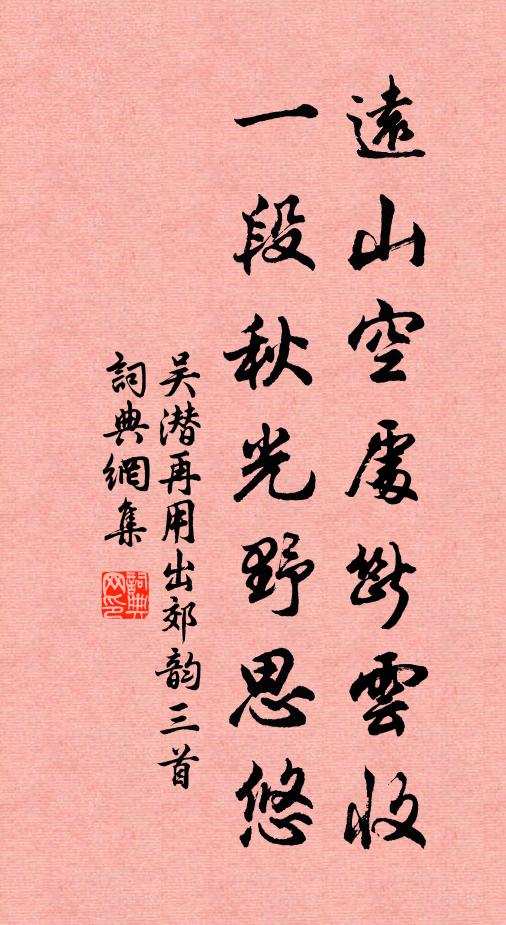 遠山空處斷雲收
一段秋光野思悠
吴潜再用出郊韵三首
詞典網集
詞典网印